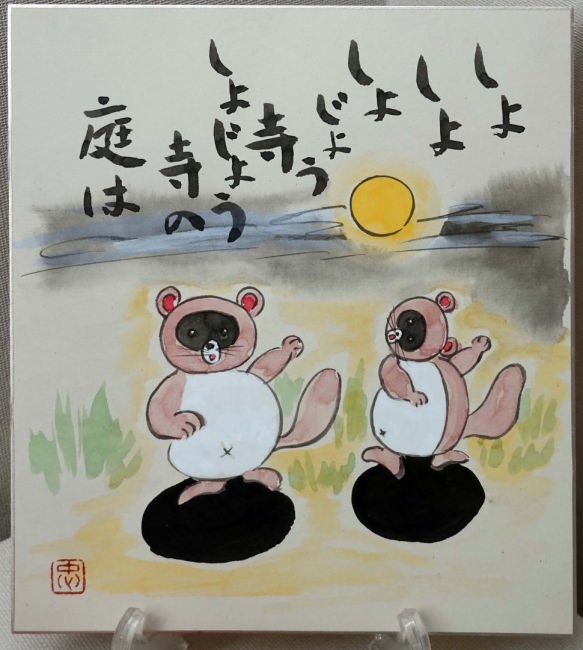 しょ
しょ
しょ
じょう
寺
しょじょう
寺の
庭は